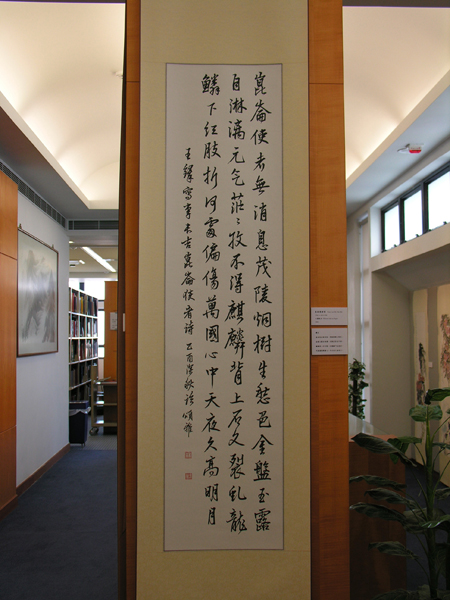 崑崙使者無消息茂陵烟樹生愁色金盤玉露
自淋漓元气茫〻收不得麒麟背上石文裂虬龍
鱗下红肢折何處偏傷萬國心中天夜久高明月
李長吉崑崙使者詩乙酉深秋